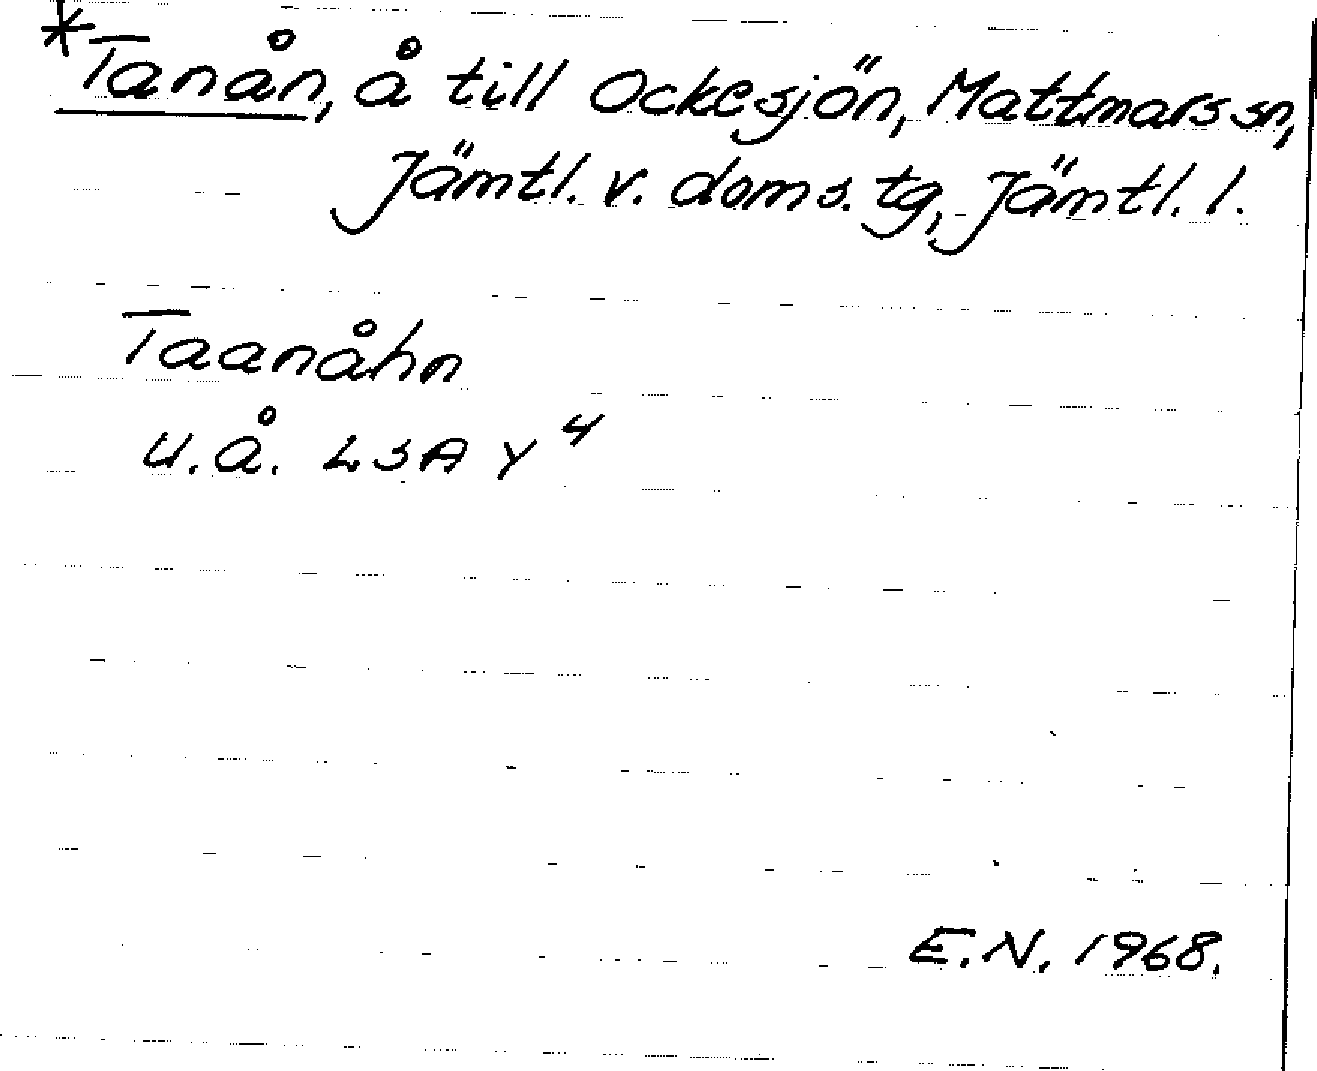 *Tanån, å till Ockesjön, Mattmars sn,
Jämtl. v. doms. tg, Jämtl. l.
Taanåhn
u.å. LSA Y 4
E.N. 1968.